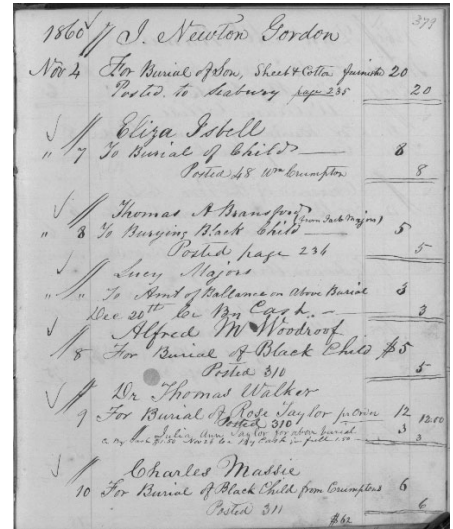 379
1860 // J. Newton Gordon
Nov 4 For Burial of Son, Sheet & Cotton furnished 20
Posted to Seabury page 235 20
// Eliza Isbell
" 7 To Burial of Child 8
Posted 48 Wm Crumpton 8
// Thomas A Bransford (from Jack Majors)
" 8 To Burying Black Child 5
Posted page 236 5
// Lucy Majors
" " To Amt of Ballance on Above Burial 3
Dec 20th Cr By Cash 3
// Alfred M Woodroof
8 For Burial of Black Child $5
Posted 310 5
// Dr Thomas Walker
9 For Burial of Rose Taylor 12
Posted 310 12.00
Julia Ann Taylor for above burial 3
By Cash Nov 26 By Cash in full 1.50 3
// Charles Massie
10 For Burial of Black Child from Crumptons 6
Posted 311 6
$62